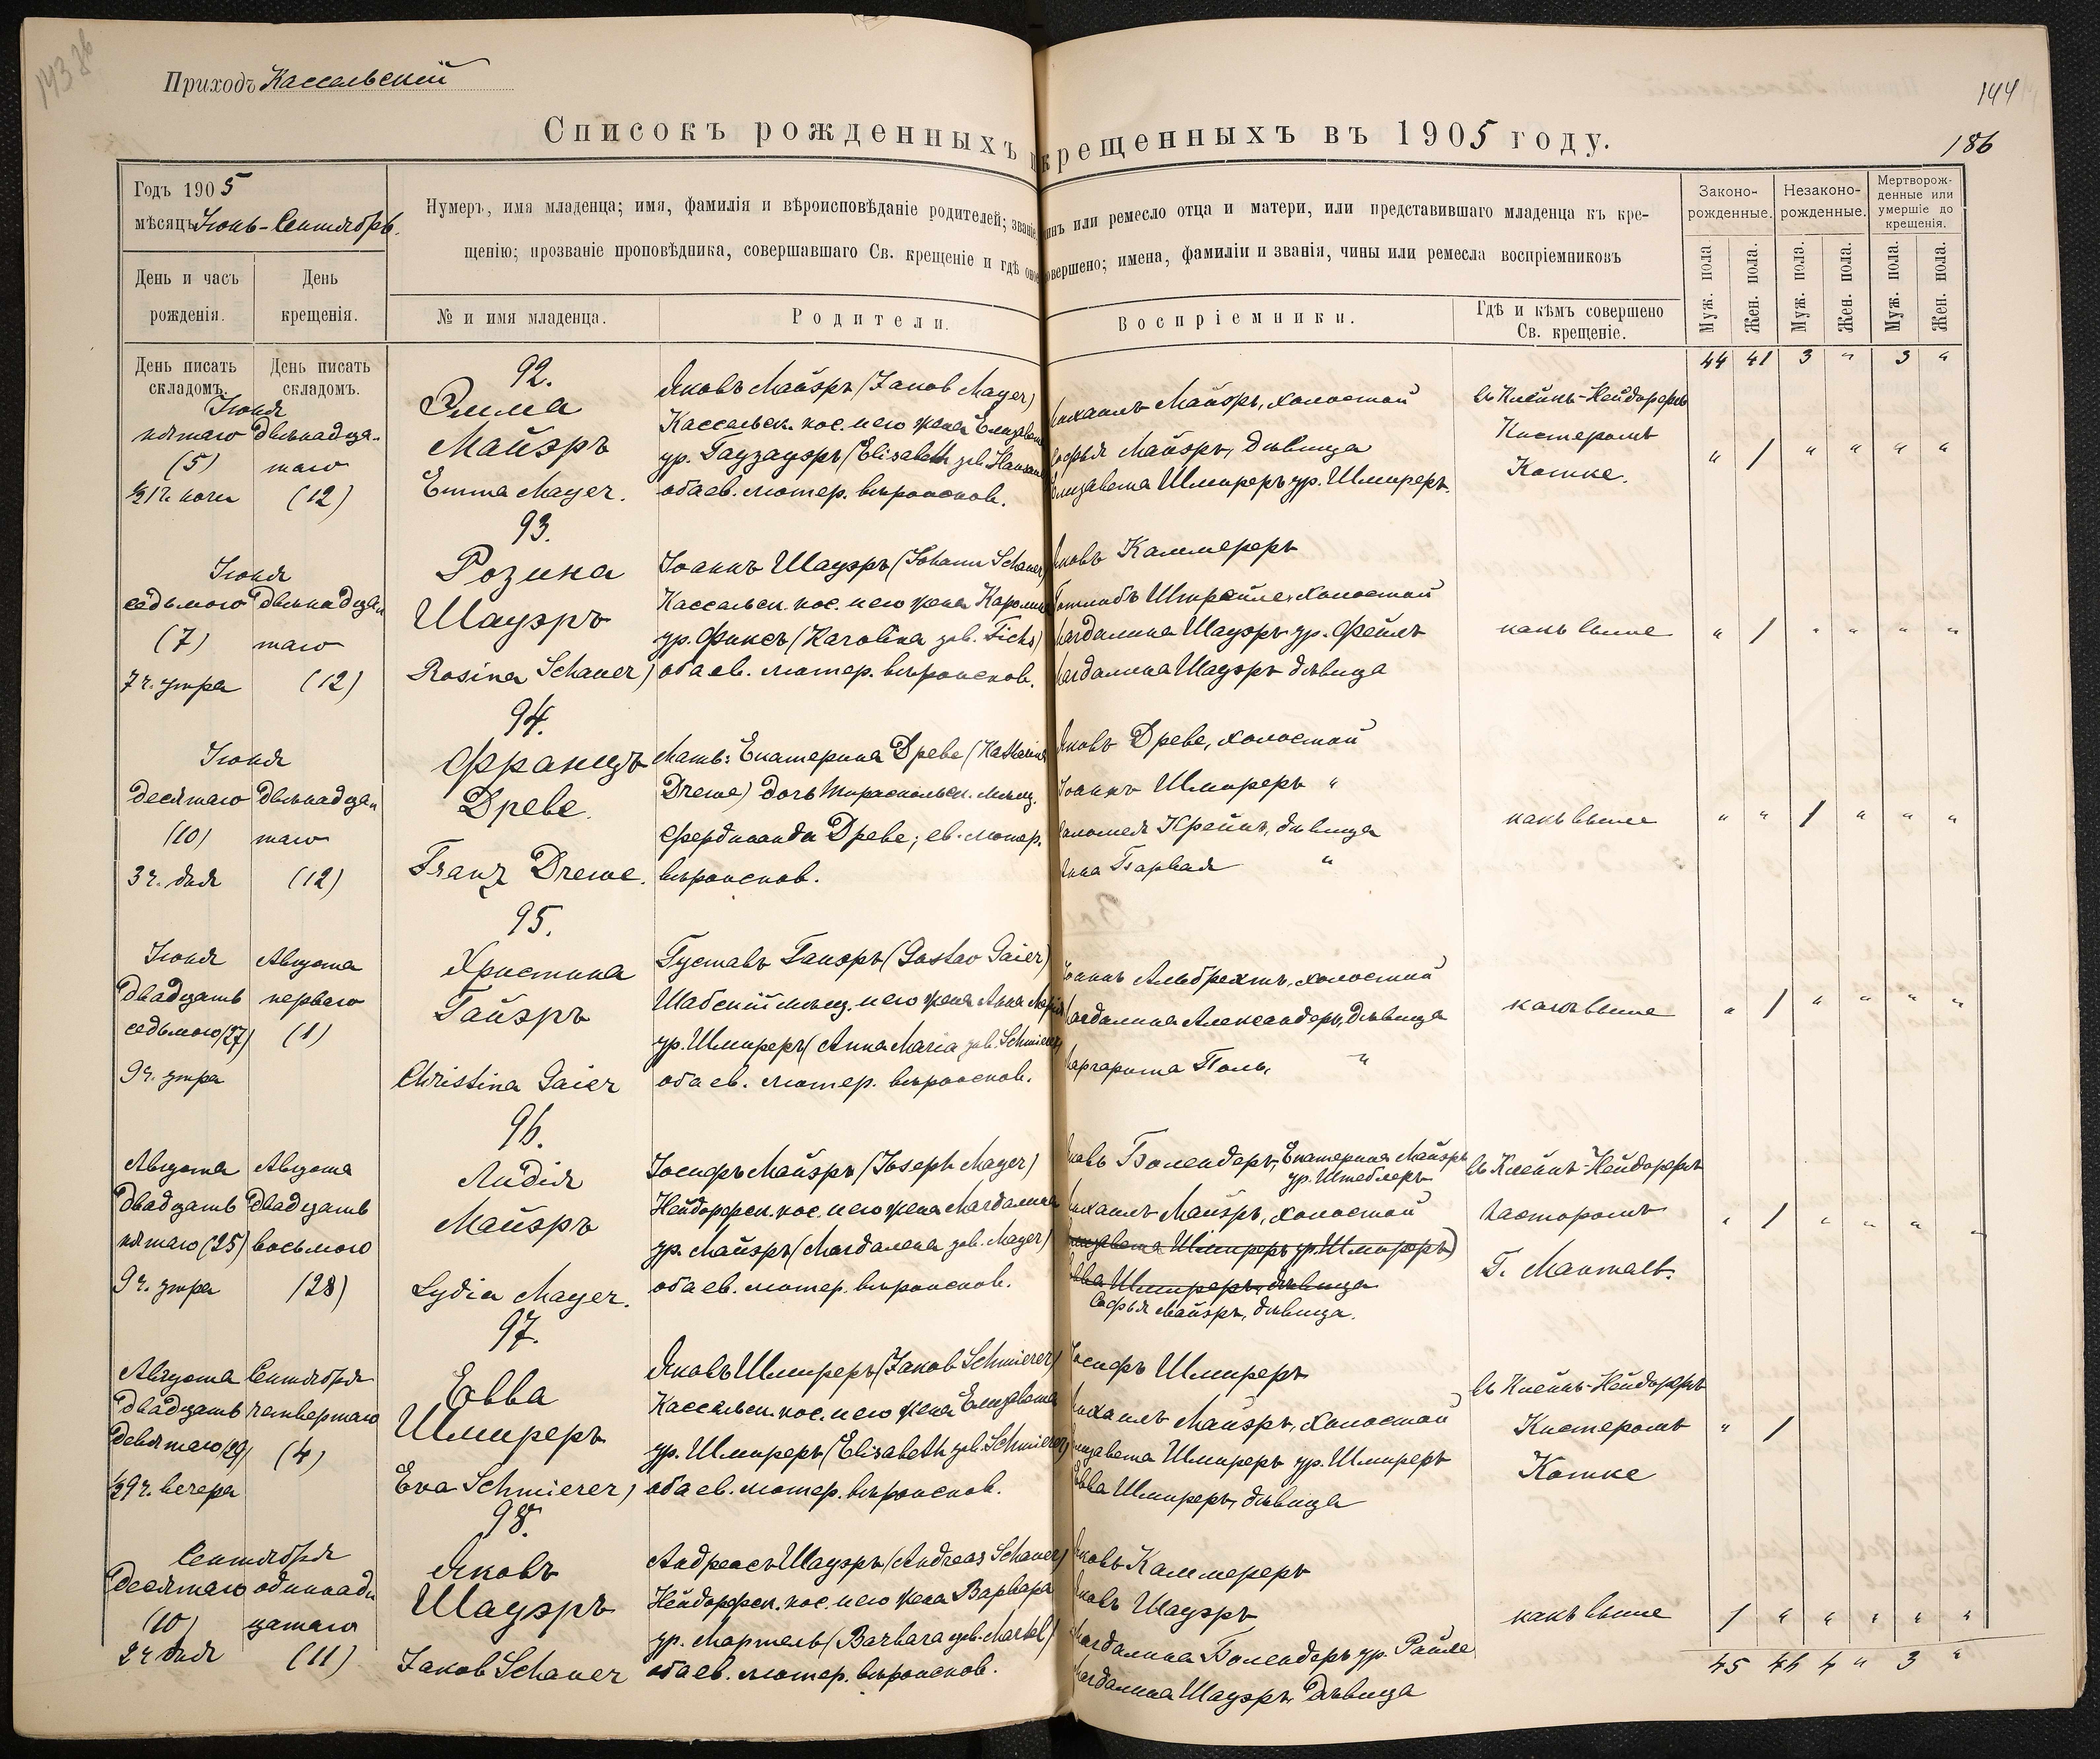 143 об
Приходъ Кассельскій
144
186
Списокъ рожденныхъ и крещенныхъ въ 1905 году.
Годъ 1905
мѣсяцъ Іюнь-Сентябрь.
День и часъ рожденія.
День крещенія.
Нумеръ, имя младенца; имя, фамилія и вѣроисповѣданіе родителей; званіе, чинъ или ремесло отца и матери, или представившаго младенца къ кре-
щенію; прозваніе проповѣдника, совершавшаго Св. крещеніе и гдѣ оное совершено; имена, фамиліи и званія, чины или ремесла воспріемниковъ
№ и имя младенца.
Родители.
Воспріемники.
Гдѣ и кѣмъ совершено
Св. крещеніе.
Законо-
рожденные.
Незаконо-
рожденные.
Мертворож-
денные или
умершіе до
крещенія.
Муж. пола
Жен. пола.
Муж. пола.
Жен. пола.
Муж. пола.
Жен. пола.
День писать
складомъ.
День писать
складомъ.
44 41 3 " 3 "
Іюня
пятаго двѣнадца-
(5) таго
½1 ч. ночи (12)
92.
Эмма
Майэръ
Emma Mayer.
Яковъ Майэръ (Jakob Mayer)
Кассельск. пос. и его жена Елизавета
ур. Гаузауэръ (Elisabeth geb. Hausauer
оба ев. лютер. вѣроиспов.
Михаилъ Майэръ, холостой
Софья Майэръ, дѣвица
Елизавета Шмиреръ ур. Шмиреръ.
въ Клейнъ-Нейдорфѣ
Кистеромъ
Котке.
" 1 " " " "
Іюня
седьмого двѣнадца
(7) таго
7 ч. утра (12)
93.
Розина
Шауэръ
Rosina Schauer)
Іоаннъ Шауэръ (Johann Schauer)
Кассельск. пос. и его жена Каролина
ур. Фиксъ (Karolina geb. Ficks)
оба ев. лютер. вѣроиспов.
Яковъ Каммереръ
Готлибъ Штрейле, холостой
Магдалина Шауэръ ур. Фейлъ
Магдалина Шауэръ дѣвица
какъ выше
" 1 " " " "
Іюня
десятаго двѣнадца
(10) таго
3 ч. дня (12)
94.
Францъ
Древе.
Franz Drewe.
Мать: Екатерина Древе (Katharina
Drewe) дочь Тираспольск. мѣщ.
Фердинанда Древе; ев. лютер.
вѣроиспов.
Яковъ Древе, холостой
Іоаннъ Шмиреръ "
Саломея Крейнъ, дѣвица
Анна "
какъ выше
" " 1 " " "
Іюня Августа
двадцать перваго
седьмого (27) (1)
9 ч. утра
95.
Христина
Гайэръ
Christina Gaier
Густавъ Гаиэръ (Gustav Gaier)
Шабскій мѣщ. и его жена Анна Марія
ур. Шмиреръ (Anna Maria geb. Schmierer
оба ев. лютер. вѣроиспов.
Іоаннъ Альбрехтъ, холостой
Магдалина Александеръ, дѣвица
Маргарита Поль, "
какъ выше
" 1 " " " "
Августа Августа
двадцать двадцать
пятаго (25) восьмого
9 ч. утра (28)
96.
Лидія
Майэръ
Lydia Mayer.
Іосифъ Майэръ (Joseph Mayer)
Нейдорфск. пос. и его жена Магдалина
ур. Майэръ (Magdalena geb. Mayer)
оба ев. лютер. вѣроиспов.
Яковъ Болендеръ, Екатерина Майэръ
ур. Штеблеръ
Михаилъ Майэръ, холостой
Елизавета Шмиреръ ур. Шмиреръ)
Евва Шмиреръ, дѣвица
Софья Майэръ, дѣвица.
въ Клейнъ-Нейдорфѣ
Пасторомъ
Г.
" 1 " " " "
Августа Сентября
двадцать четвертаго
девятаго (29) (4)
½9 ч. вечера
97.
Евва
Шмиреръ
Eva Schmierer)
Яковъ Шмиреръ (Jakob Schmierer)
Кассельск. пос. и его жена Елизавета
ур. Шмиреръ (Elisabeth geb. Schmierer)
оба ев. лютер. вѣроиспов.
Іосифъ Шмиреръ
Михаилъ Майэръ, холостой
Елизавета Шмиреръ ур. Шмиреръ
Евва Шмиреръ, дѣвица
въ Клейнъ-Нейдорфѣ
Кистеромъ
Котке
" 1
Сентября
десятаго одиннад
(10) цатаго
2 ч. дня (11)
98.
Яковъ
Шауэръ
Jakob Schauer
Андреасъ Шауэръ (Andreas Schauer)
Нейдорфск. пос. и его жена Варвара
ур. Мартель (Barbara geb. Martel)
оба ев. лютер. вѣроиспов.
Яковъ Каммереръ
Яковъ Шауэръ
Магдалина Болендеръ ур. Райле
Магдалина Шауэръ, дѣвица
какъ выше
1 " " " " "
45 46 4 " 3 "